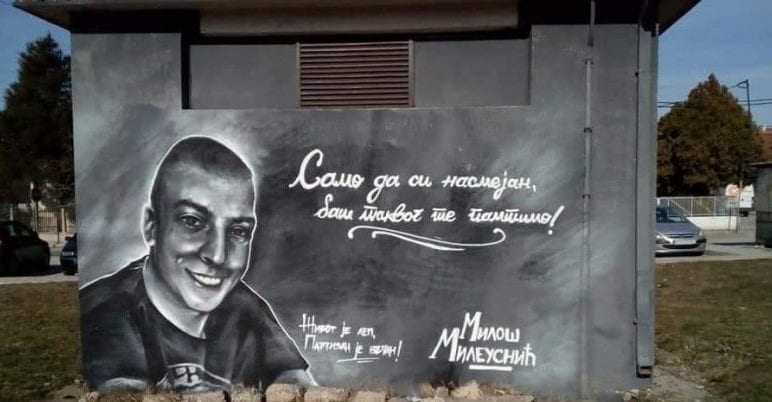 Само да си насмејан,
баш таквог те памтимо!
Живот је леп,
Партизан је вечан!
Милош
Милеуснић